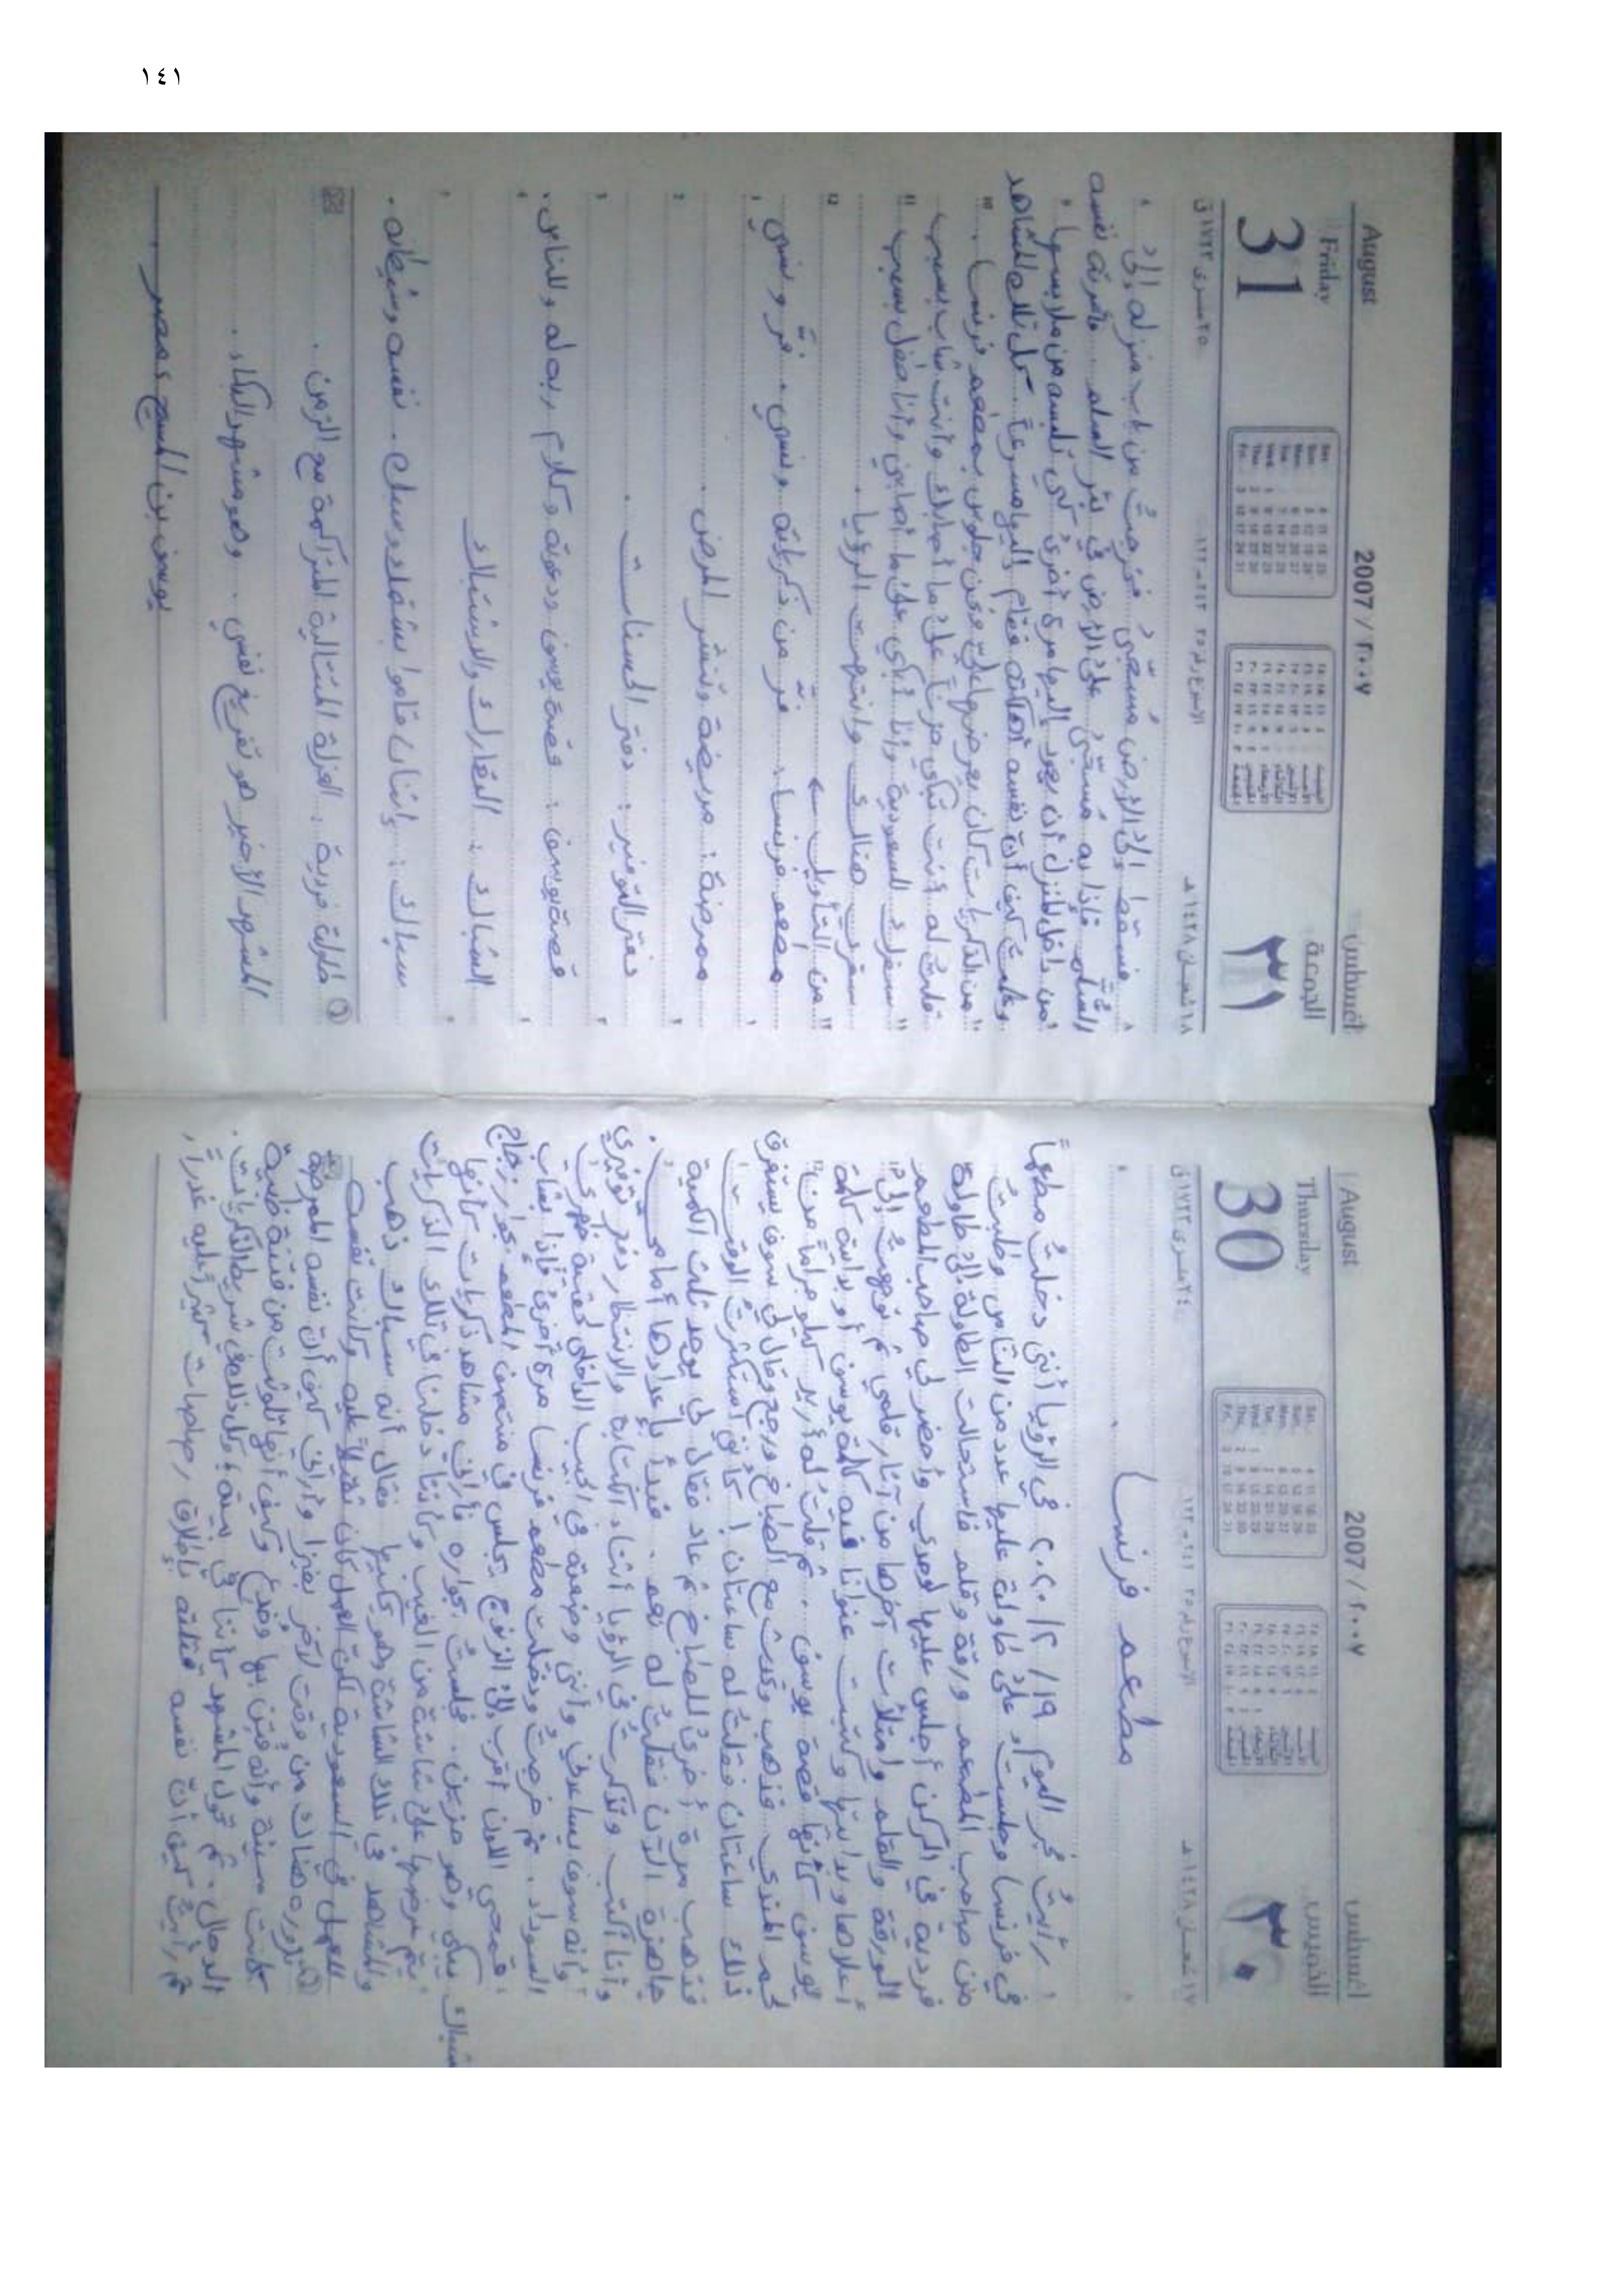 ١٤١
August
Thursday
30
2007 / ٢٠٠٧
أغسطس
الخميس
٣٠
١٧ شعبان ١٤٢٨ هـ
مطعم فرنسا
رأيتُ فجر اليوم ١٩/٢/٢٠٢٠ في الرؤيا أنني دخلتُ مطعماً
في فرنسا وجلست على طاولة عليها عدد من الناس وطلبتُ
من صاحب المطعم ورقة وقلم فاستحالت الطاولة إلى طاولة
فردية في الركن أجلس عليها لوحدي وأحضر لي صاحب المطعم
الورقة والقلم وامتلأت آخرها من آثار قلمي ثم توجهتُ إلى
أعلاها وبدايتها وكتبت عنوانا فيه كلمة يوسف أو بداية كلمة
يوسف كأنها قصة يوسف .. ثم قلتُ له أريد كيلو جراماً من
لحم الضأن فذهب وتحدث مع الطباخ ورجع وقال لي سوف يستغرق
ذلك ساعتان فقلت له ساعتان ! كأنني استكثرتُ الوقت
فذهب مرة أخرى للطباخ ثم عاد فقال لي يوجد ثلث الكمية
جاهزة الآن فقلت له نعم . فبدأ بإعدادها أمامي .
وأنا أكتب وتذكرتُ في الرؤيا أثناء الكتابة والانتظار دفتر توفيري
وأنه سوف يساعدني وأنني وضعته في الجيب الداخلي لحقيبة ظهري
السوداء . ثم خرجتُ ودخلت مطعم فرنسا مرة أخرى فإذا بشاب
قمحي اللون أقرب إلى الزنوج يجلس في منتصف المطعم بجوار زجاج
شباك يبكي وهو حزين . فجلستُ بجواره فأراني مشاهد ذكريات كأنها
يتم عرضها على شاشة من الغيب وكأننا دخلنا في تلك الذكريات
والمشاهد في تلك الشاشة وهو يحكيها فقال أنه سباك ذهب
للعمل في السعودية لكن العمل كان ثقيلاً عليه وكانت نفسه
تزوره هناك من وقت لآخر
كانت سيئة وأنه فُتن بها
الدجال . ثم تحول المشهد كأننا في بيته
ثم رأيتُ كيف أن نفسه قتلته بإطلاق رصاصات كثيرة عليه غدراً
August
Friday
31
2007 / ٢٠٠٧
أغسطس
الجمعة
٣١
١٨ شعبان ١٤٢٨ هـ
فسقط إلى الأرض مسجّى فخرجتُ من باب منزله إلى
السلم فإذا به مُسجّى على الأرض في بئر السلم
من داخل المنزل أن يعود إليها مرة أخرى لكي تلبسه من ملابسها
وعلمتُ كيف أن نفسه أهلكته فقام إليها مسرعاً . كل تلك المشاهد
من الذكريات كان يعرضها عليّ ونحن جلوس بمطعم فرنسا .
قلتُ له أنت تبكي حزناً على ما أصابك وأنت شاب بسبب
سفرك للسعودية وأنا أبكي على ما أصابني وأنا طفل بسبب
سفري هنالك وانتهت الرؤيا .
من التأويل ←
مطعم فرنسا : فرّ من ذكرياته ونسي ، فرّ ونسي
ممرضة : مريضة وتنشر المرض .
دفتر التوفير : دفتر الحسنات .
قصة يوسف : قصة يوسف ودعوته وكلام ربه له وللناس .
الشباك : التعارك والاشتباك
سباك : إثنان قاموا بشغله وسبك ، نفسه وشيطانه .
طاولة فردية : العزلة المتتالية المتراكمة مع الزمن .
المشهد الأخير هو تفريغ نفسي .. وهو مشهد البكاء .
يوسف بن المسيح ، مصر